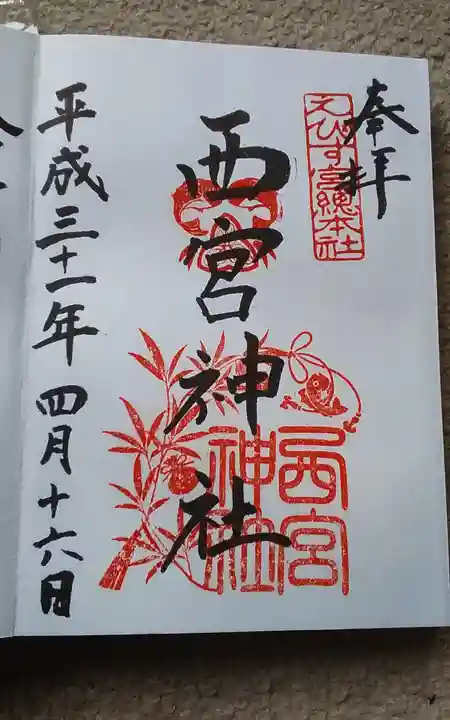 奉拝
えびす宮總本社
西宮神社
西宮
神社
平成三十一年 四月十六日